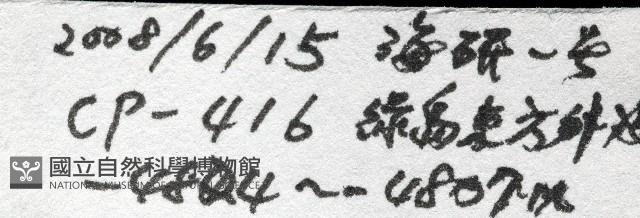 2008/6/15 海研一号
CP-416 綠島東方斜
國立自然科學博物館
NATIONAL MUSEUM OF NATURAL SCIENCE
~-4807m